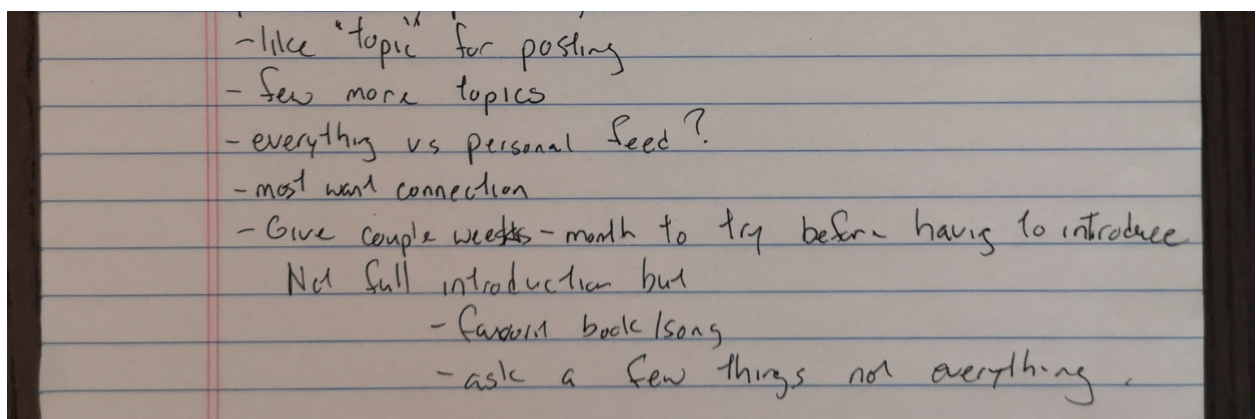 -like "topic" for posting
- few more topics
- everything vs personal feed?
- most want connection
- Give couple weeks - month to try before having to introduce
Not full introduction but
- favourit book/song
- ask a few things not everything.